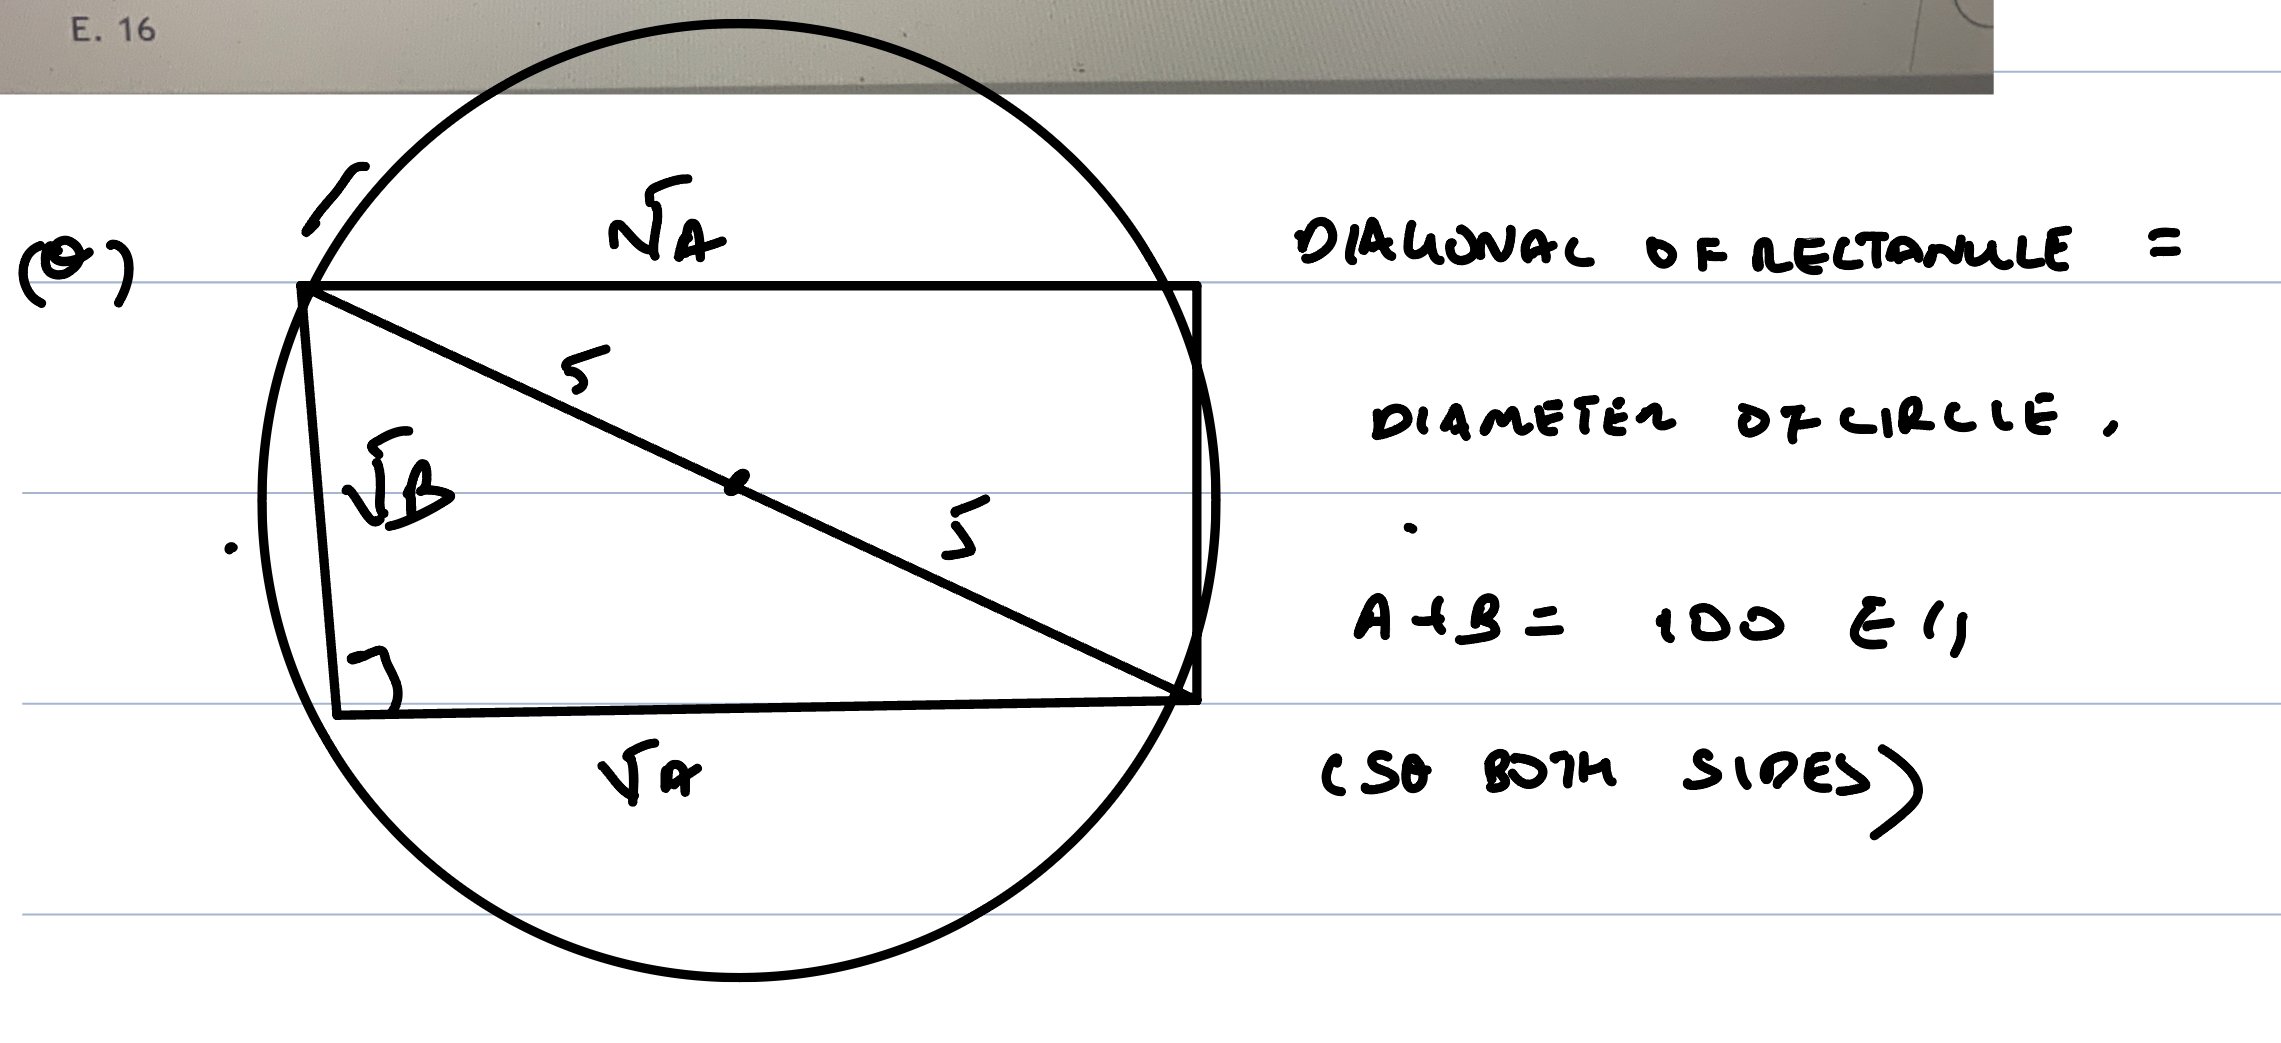 E. 16
√A
(Q)
DIAGONAL OF RECTANGLE =
5
DIAMETER OF CIRCLE .
√B
5
A + B = 100 E(1)
√A
(SQ BOTH SIDES)